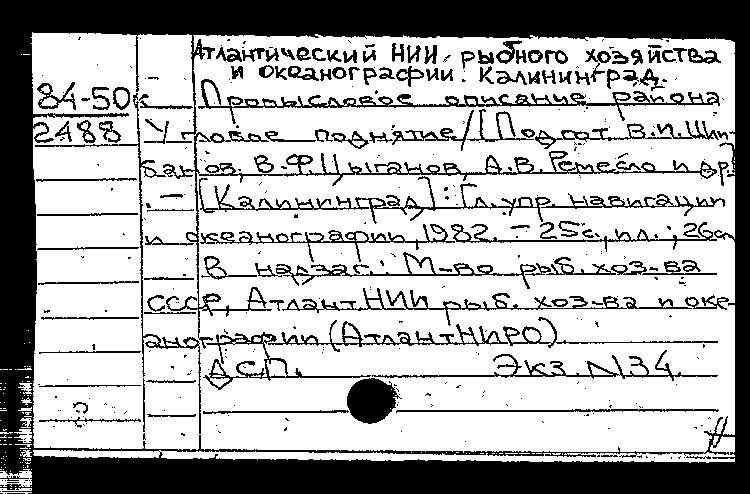 Атлантический НИИ рыбного хозяйства
и океанографии. Калининград.
84-50к Промысловое описание района
2488 Угловое поднятие/[Подгот. В.И.Шли-
банов, В.Ф.Цыганов, А.В. Ремесло и др.]
. — [Калининград]: Гл. упр. навигации
и океанографии, 1982. - 25с., ил.; 26см
В надзаг.: М-во рыб. хоз-ва
СССР, Атлант. НИИ рыб. хоз-ва и оке-
анографии (АтлантНИРО).
ДСП. Экз. N34.